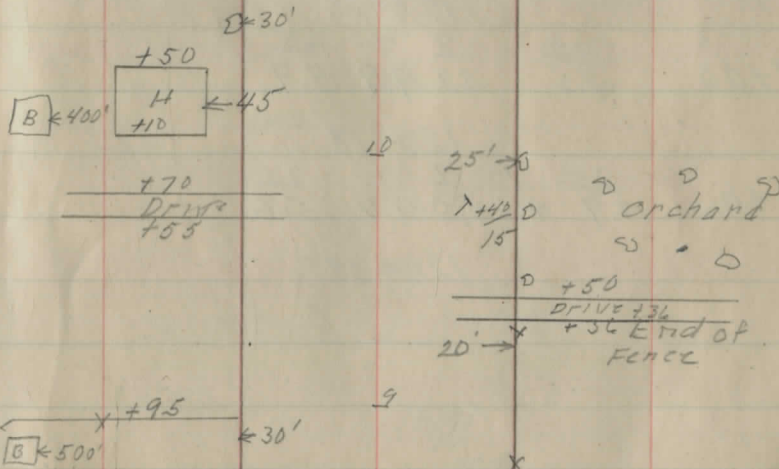 30'
+50
B 400' H 45
+10
10
25'
+70
Drive
+55
+40
15
Orchard
+50
Drive +36
+36 End of
Fence
20'
+95
9
30'
B 500'